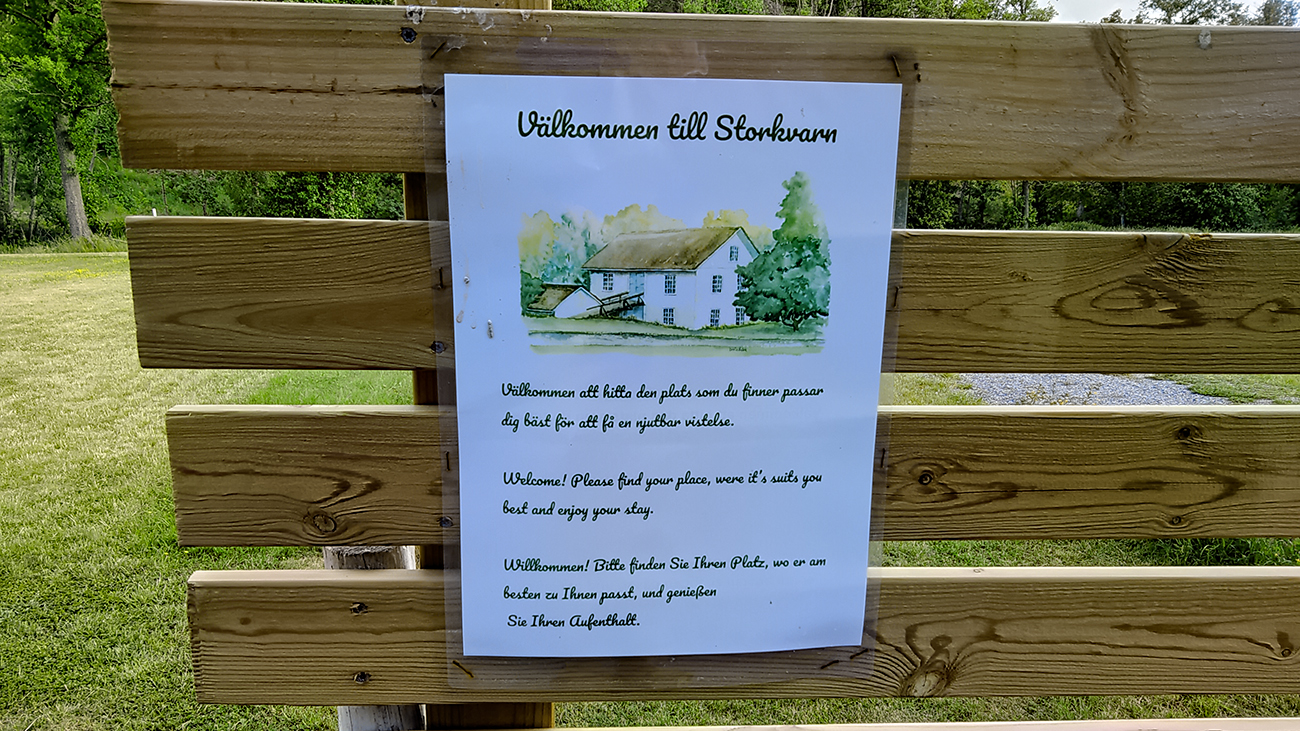 Välkommen till Storkvarn
Välkommen att hitta den plats som du finner passar
dig bäst för att få en njutbar vistelse.
Welcome! Please find your place, were it's suits you
best and enjoy your stay.
Willkommen! Bitte finden Sie Ihren Platz, wo er am
besten zu Ihnen passt, und genießen
Sie Ihren Aufenthalt.